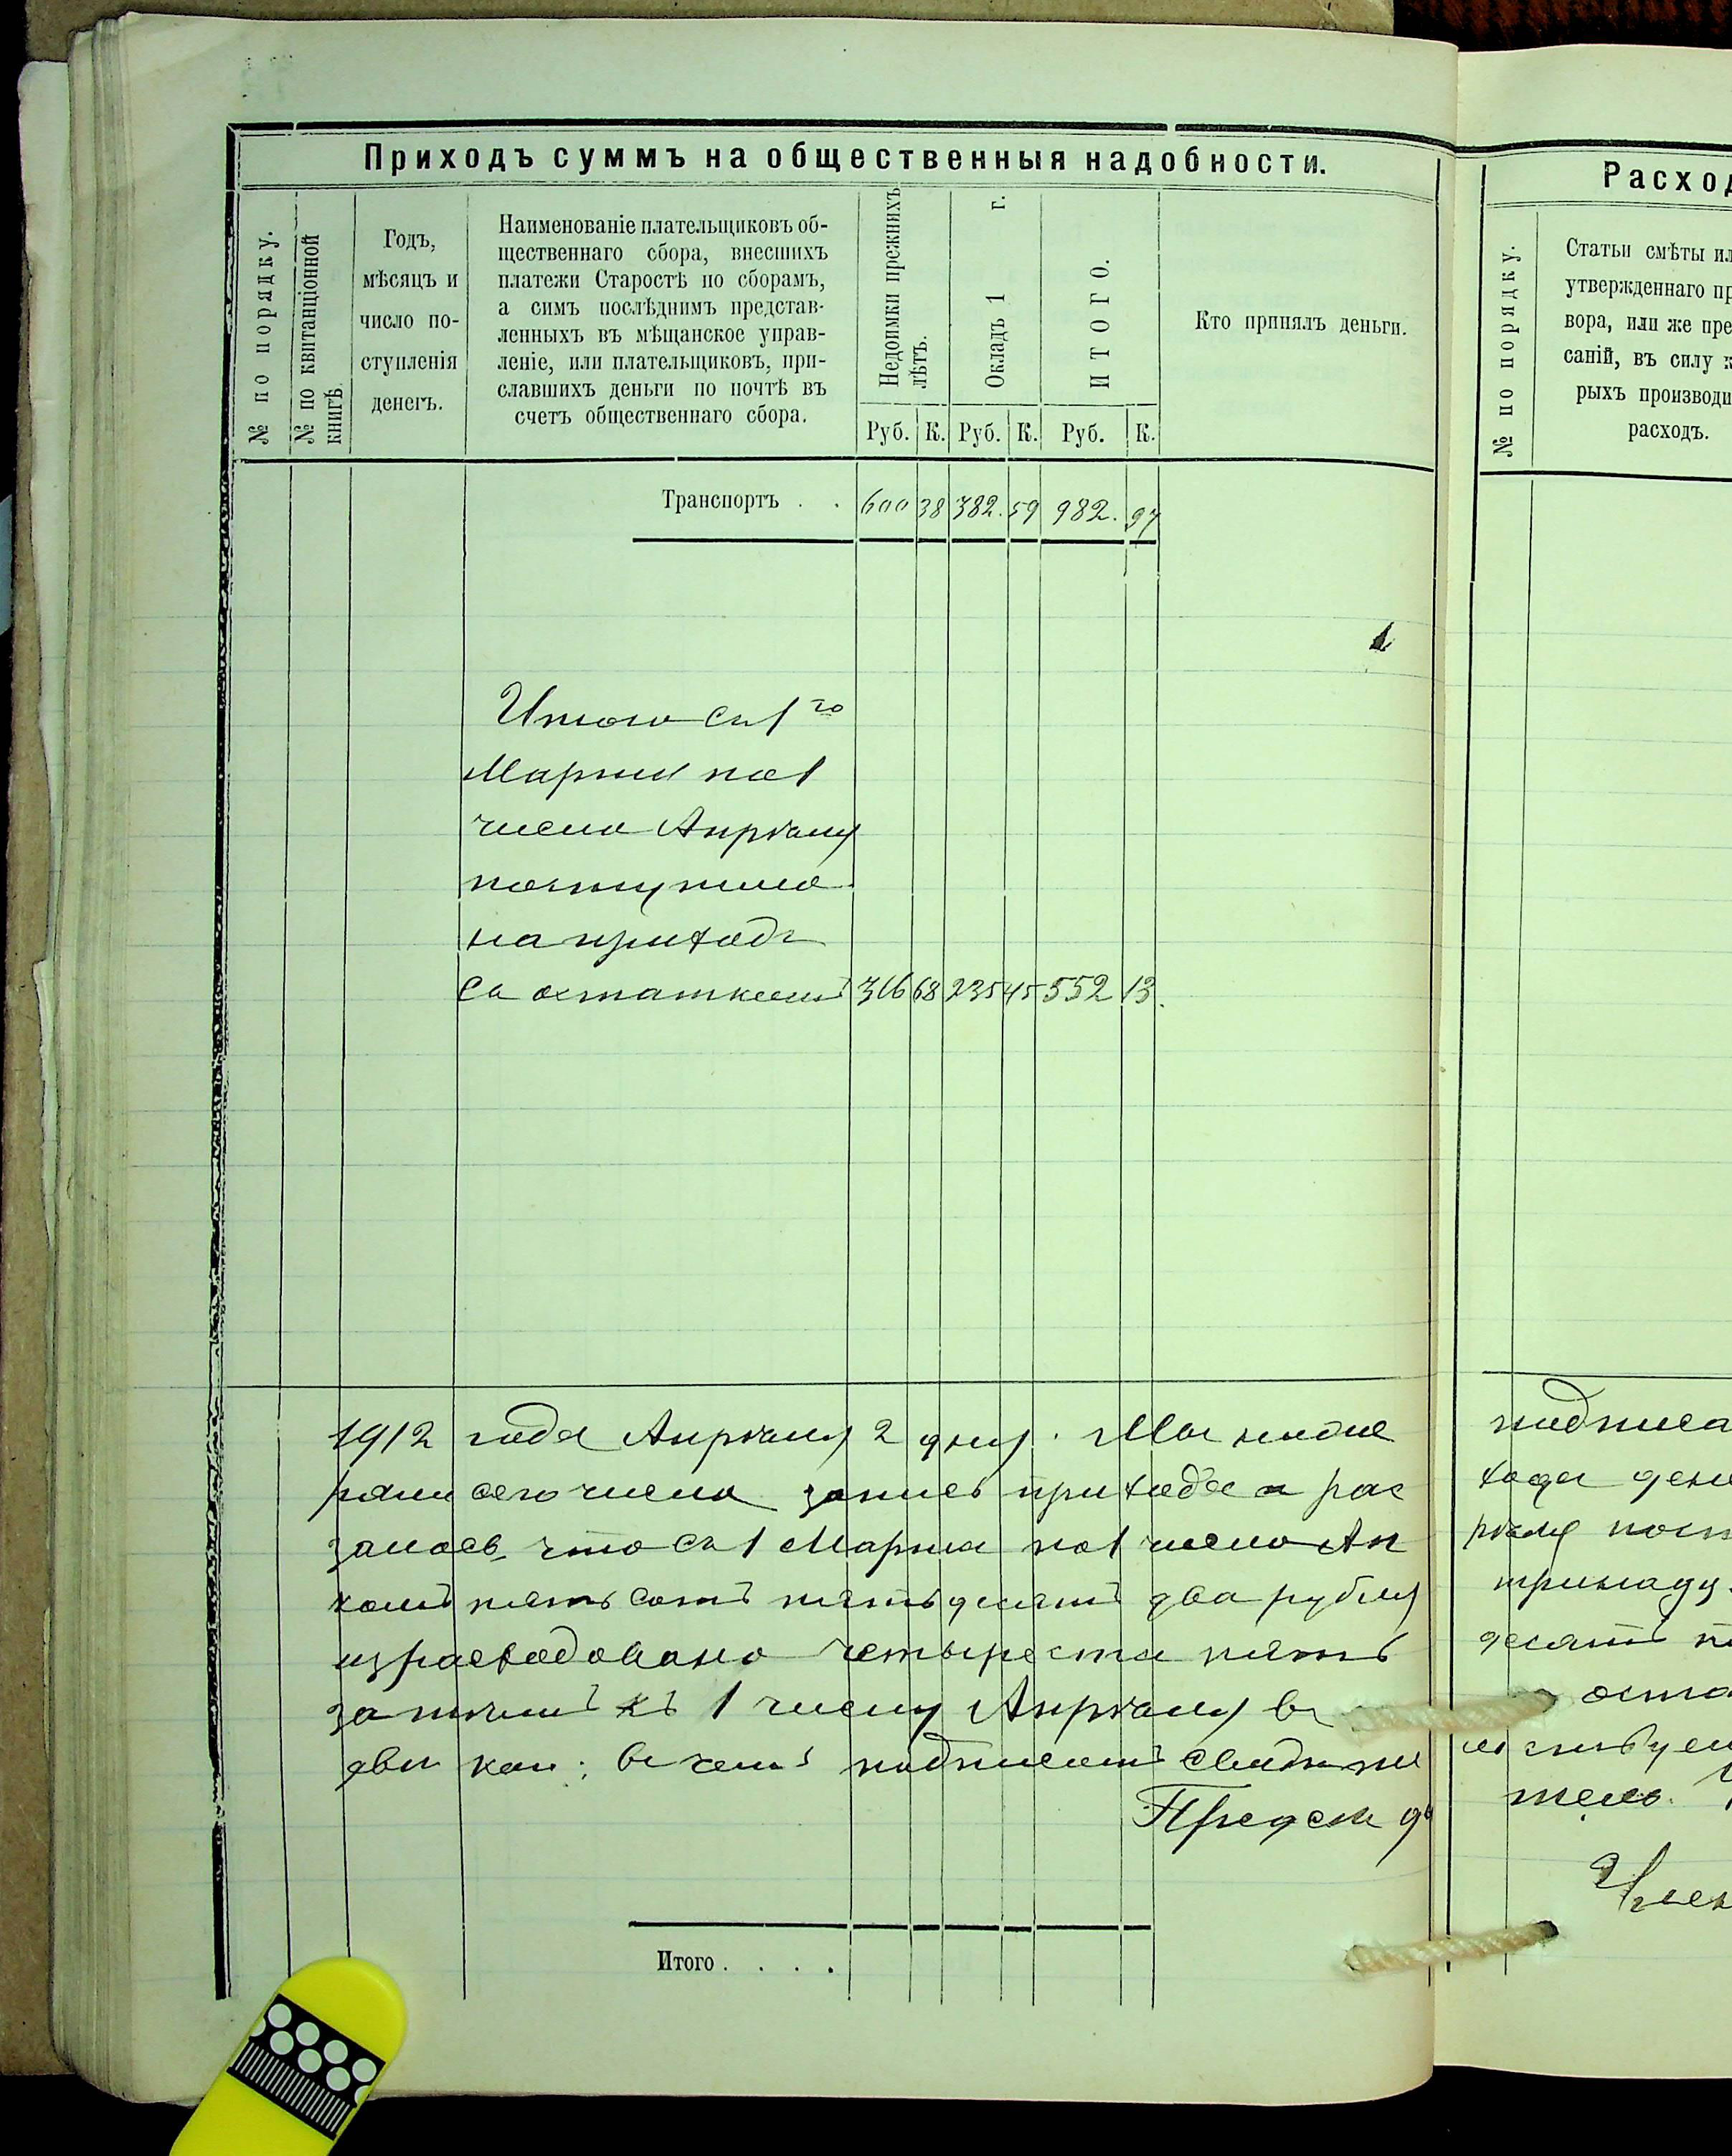 Приходъ суммъ на общественныя надобности.
№ по порядку.
№ по квитанціонной
книгѣ.
Годъ,
мѣсяцъ и
число по-
ступленія
денегъ.
Наименованіе плательщиковъ об-
щественнаго сбора, внесшихъ
платежи Старостѣ по сборамъ,
а симъ послѣднимъ представ-
ленныхъ въ мѣщанское управ-
леніе, или плательщиковъ, при-
славшихъ деньги по почтѣ въ
счетъ общественнаго сбора.
Недоимки прежнихъ
лѣтъ.
Окладъ 1 г.
ИТОГО.
Кто принялъ деньги.
Руб. К. Руб. К. Руб. К.
Транспортъ . . 600 38 382. 59 982. 97
Итого съ 1го
Марта по 1
число Апрѣля
поступило
на приходъ
съ остаткомъ 316 68 235 45 552 13.
1912 года Апрѣля 2 дня. Мы ниже
ряли сего числа запись прихода и рас
залось, что съ 1 Марта по 1 число Ап
комъ пять сотъ пятьдесятъ два рубля
израсходовано четыреста пять
затѣмъ къ 1 числу Апрѣля въ
двѣ коп; въ чемъ подписомъ свидѣте
Предсѣд
Итого . . . .
Расход
№ по порядку.
Статьи смѣты ил
утвержденнаго пр
вора, или же пре
саній, въ силу к
рыхъ производи
расходъ.
подписа
хода дене
рѣля пост
тринадц
десятъ п
оста
тель.
Член